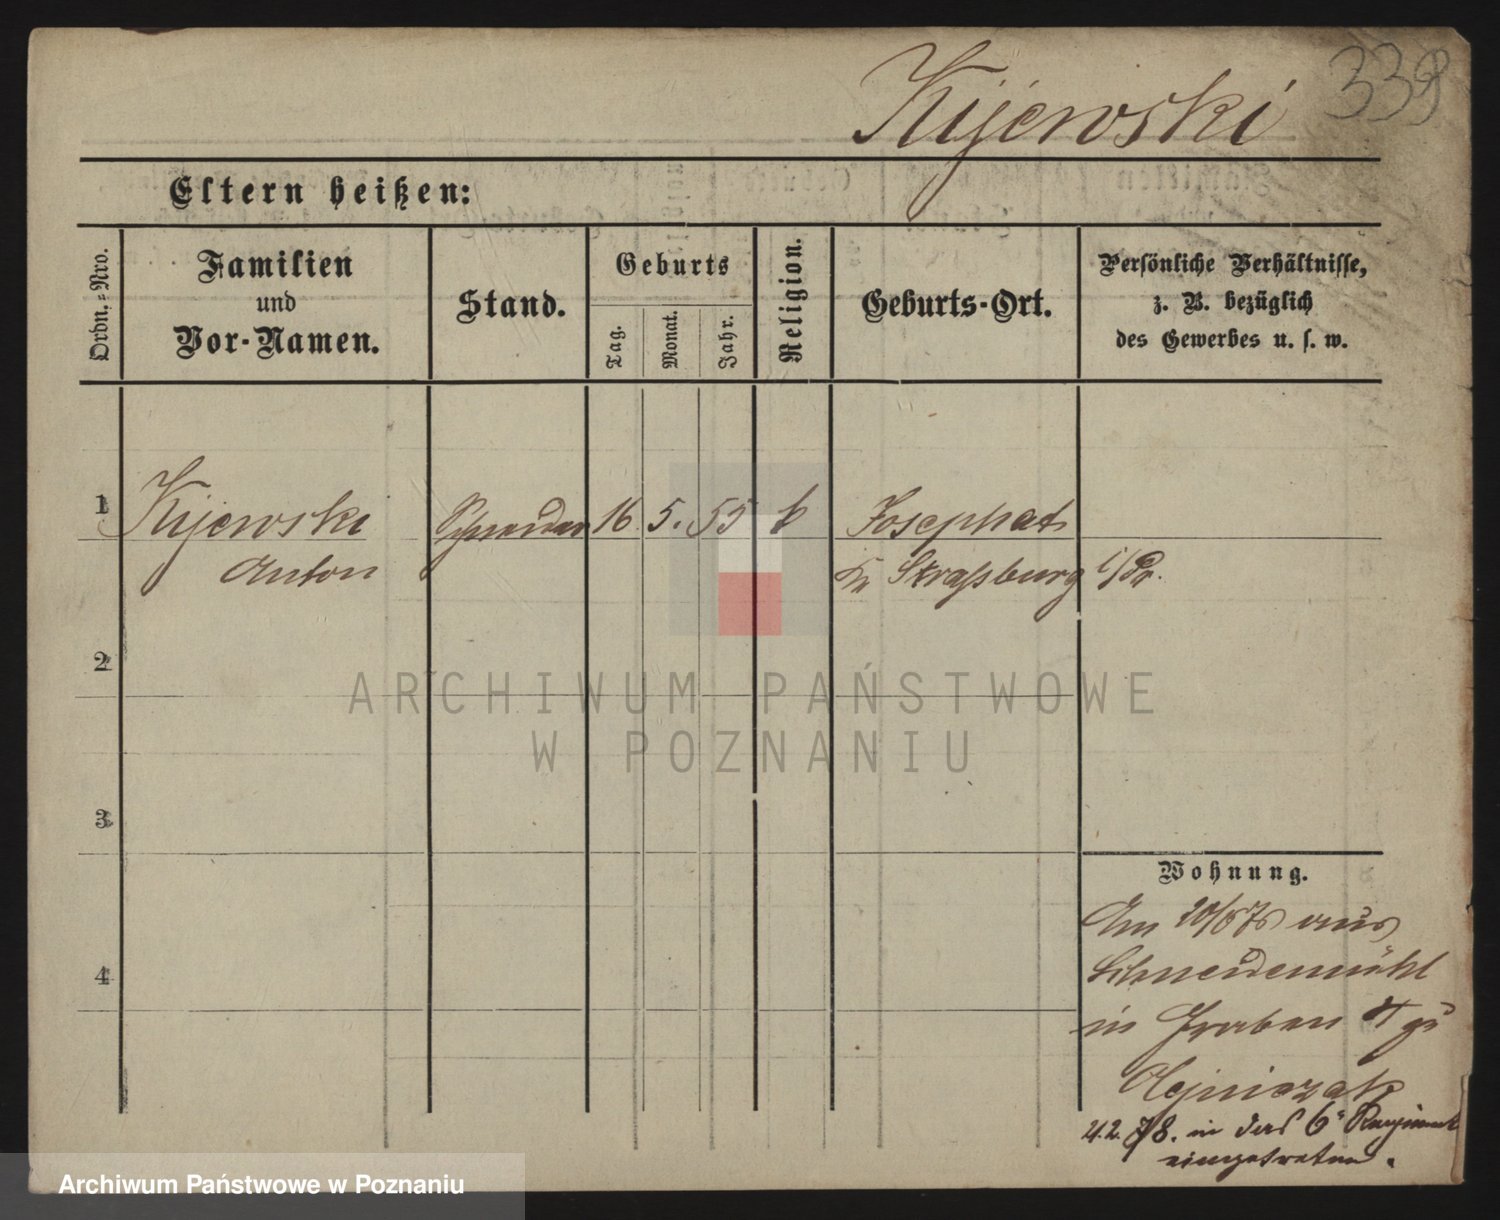 339
Kijewski
Eltern heißen:
Ordn.=Nro.
Familien
und
Vor-Namen.
Stand.
Geburts
Tag.
Monat.
Jahr.
Religion.
Geburts-Ort.
Persönliche Verhältnisse,
z. B. bezüglich
des Gewerbes u. s. w.
1
Kijewski
Anton
Schneider
16
5.
55
k
Josephat
Kr Straßburg i/Pr.
2
3
4
Wohnung.
Am 20/5 75 aus
Schneidemühl
in Graben 4 zu
Olejniczak
4.2.78. in das 6te Regiment
eingetreten.
ARCHIWUM PAŃSTWOWE
W POZNANIU
Archiwum Państwowe w Poznaniu